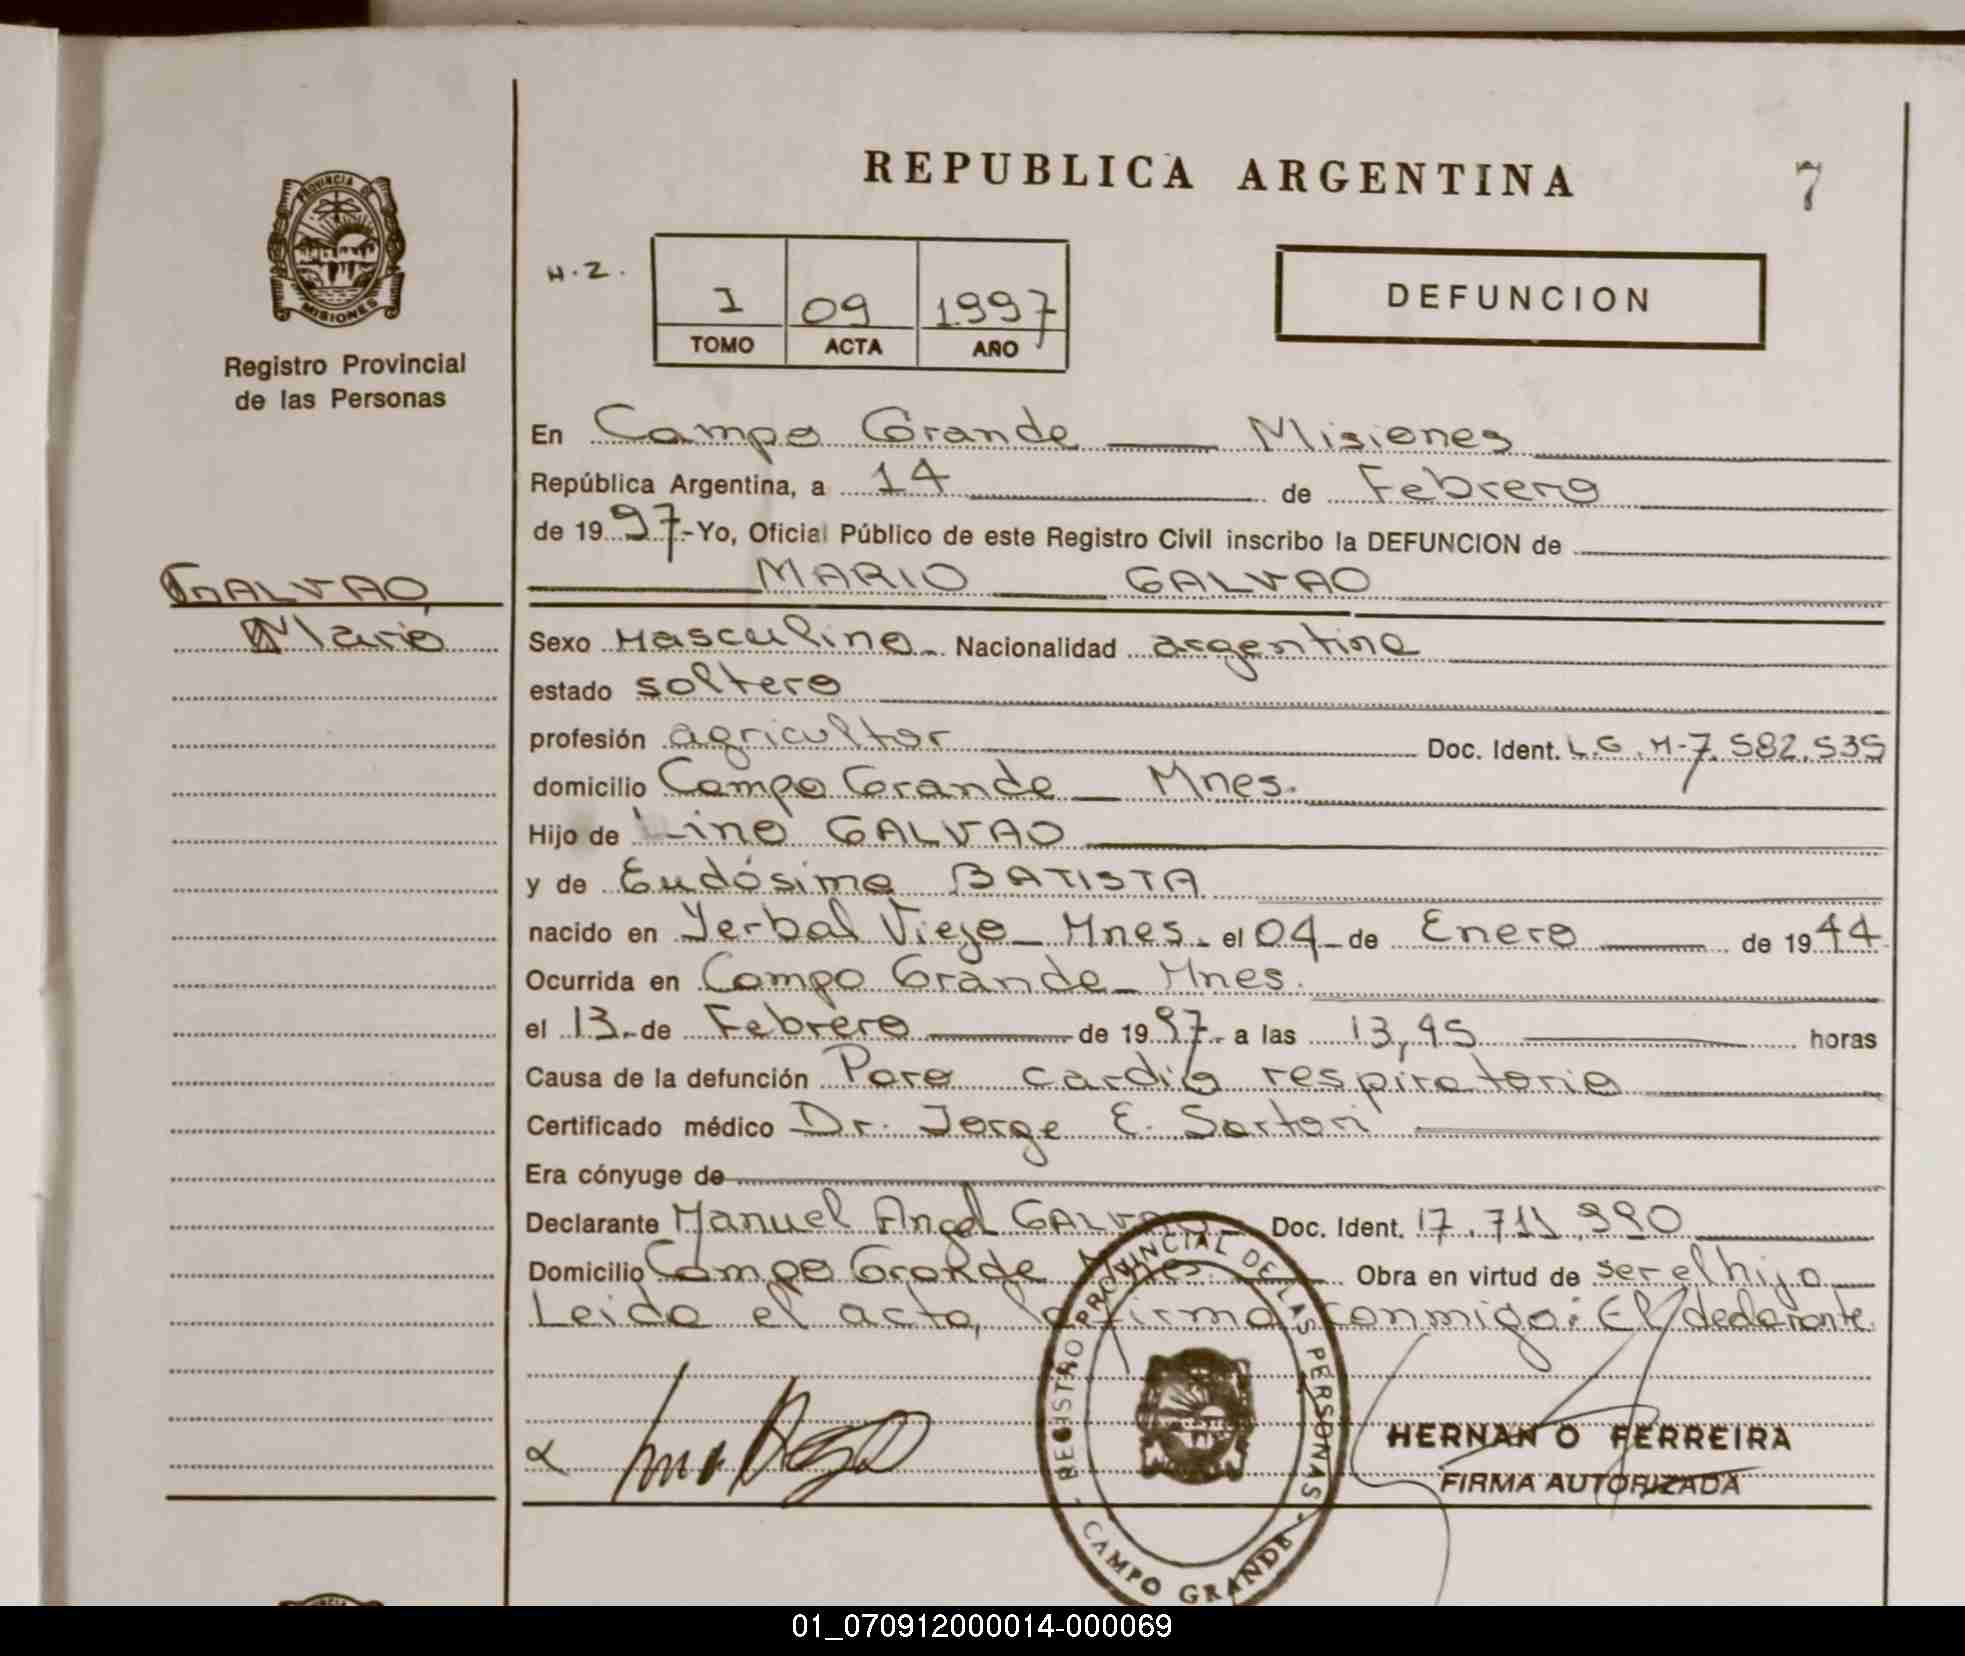 REPUBLICA ARGENTINA
7
PROVINCIA DE
MISIONES
Registro Provincial
de las Personas
H.Z.
I 09 1997
TOMO ACTA AÑO
DEFUNCION
En Campo Grande Misiones
República Argentina, a 14 de Febrero
de 1997.-Yo, Oficial Público de este Registro Civil inscribo la DEFUNCION de
MARIO GALVAO
GALVAO
Mario
Sexo Masculino Nacionalidad argentina
estado soltero
profesión agricultor Doc. Ident. M-7.582.535
domicilio Campo Grande Mnes.
Hijo de Lino GALVAO
y de Eudósima BATISTA
nacido en Yerbal Viejo Mnes. el 04 de Enero de 1944
Ocurrida en Campo Grande Mnes.
el 13 de Febrero de 1997 a las 13,45 horas
Causa de la defunción Paro cardio respiratorio
Certificado médico Dr. Jorge E. Sartori
Era cónyuge de
Declarante Manuel Angel GALVAO Doc. Ident. 17.711.990
Domicilio Campo Grande Mnes. Obra en virtud de ser el hijo
Leida el acta, la firma conmigo: El declarante
REGISTRO PROVINCIAL DE LAS PERSONAS
CAMPO GRANDE
HERNAN O FERREIRA
FIRMA AUTORIZADA
01_070912000014-000069